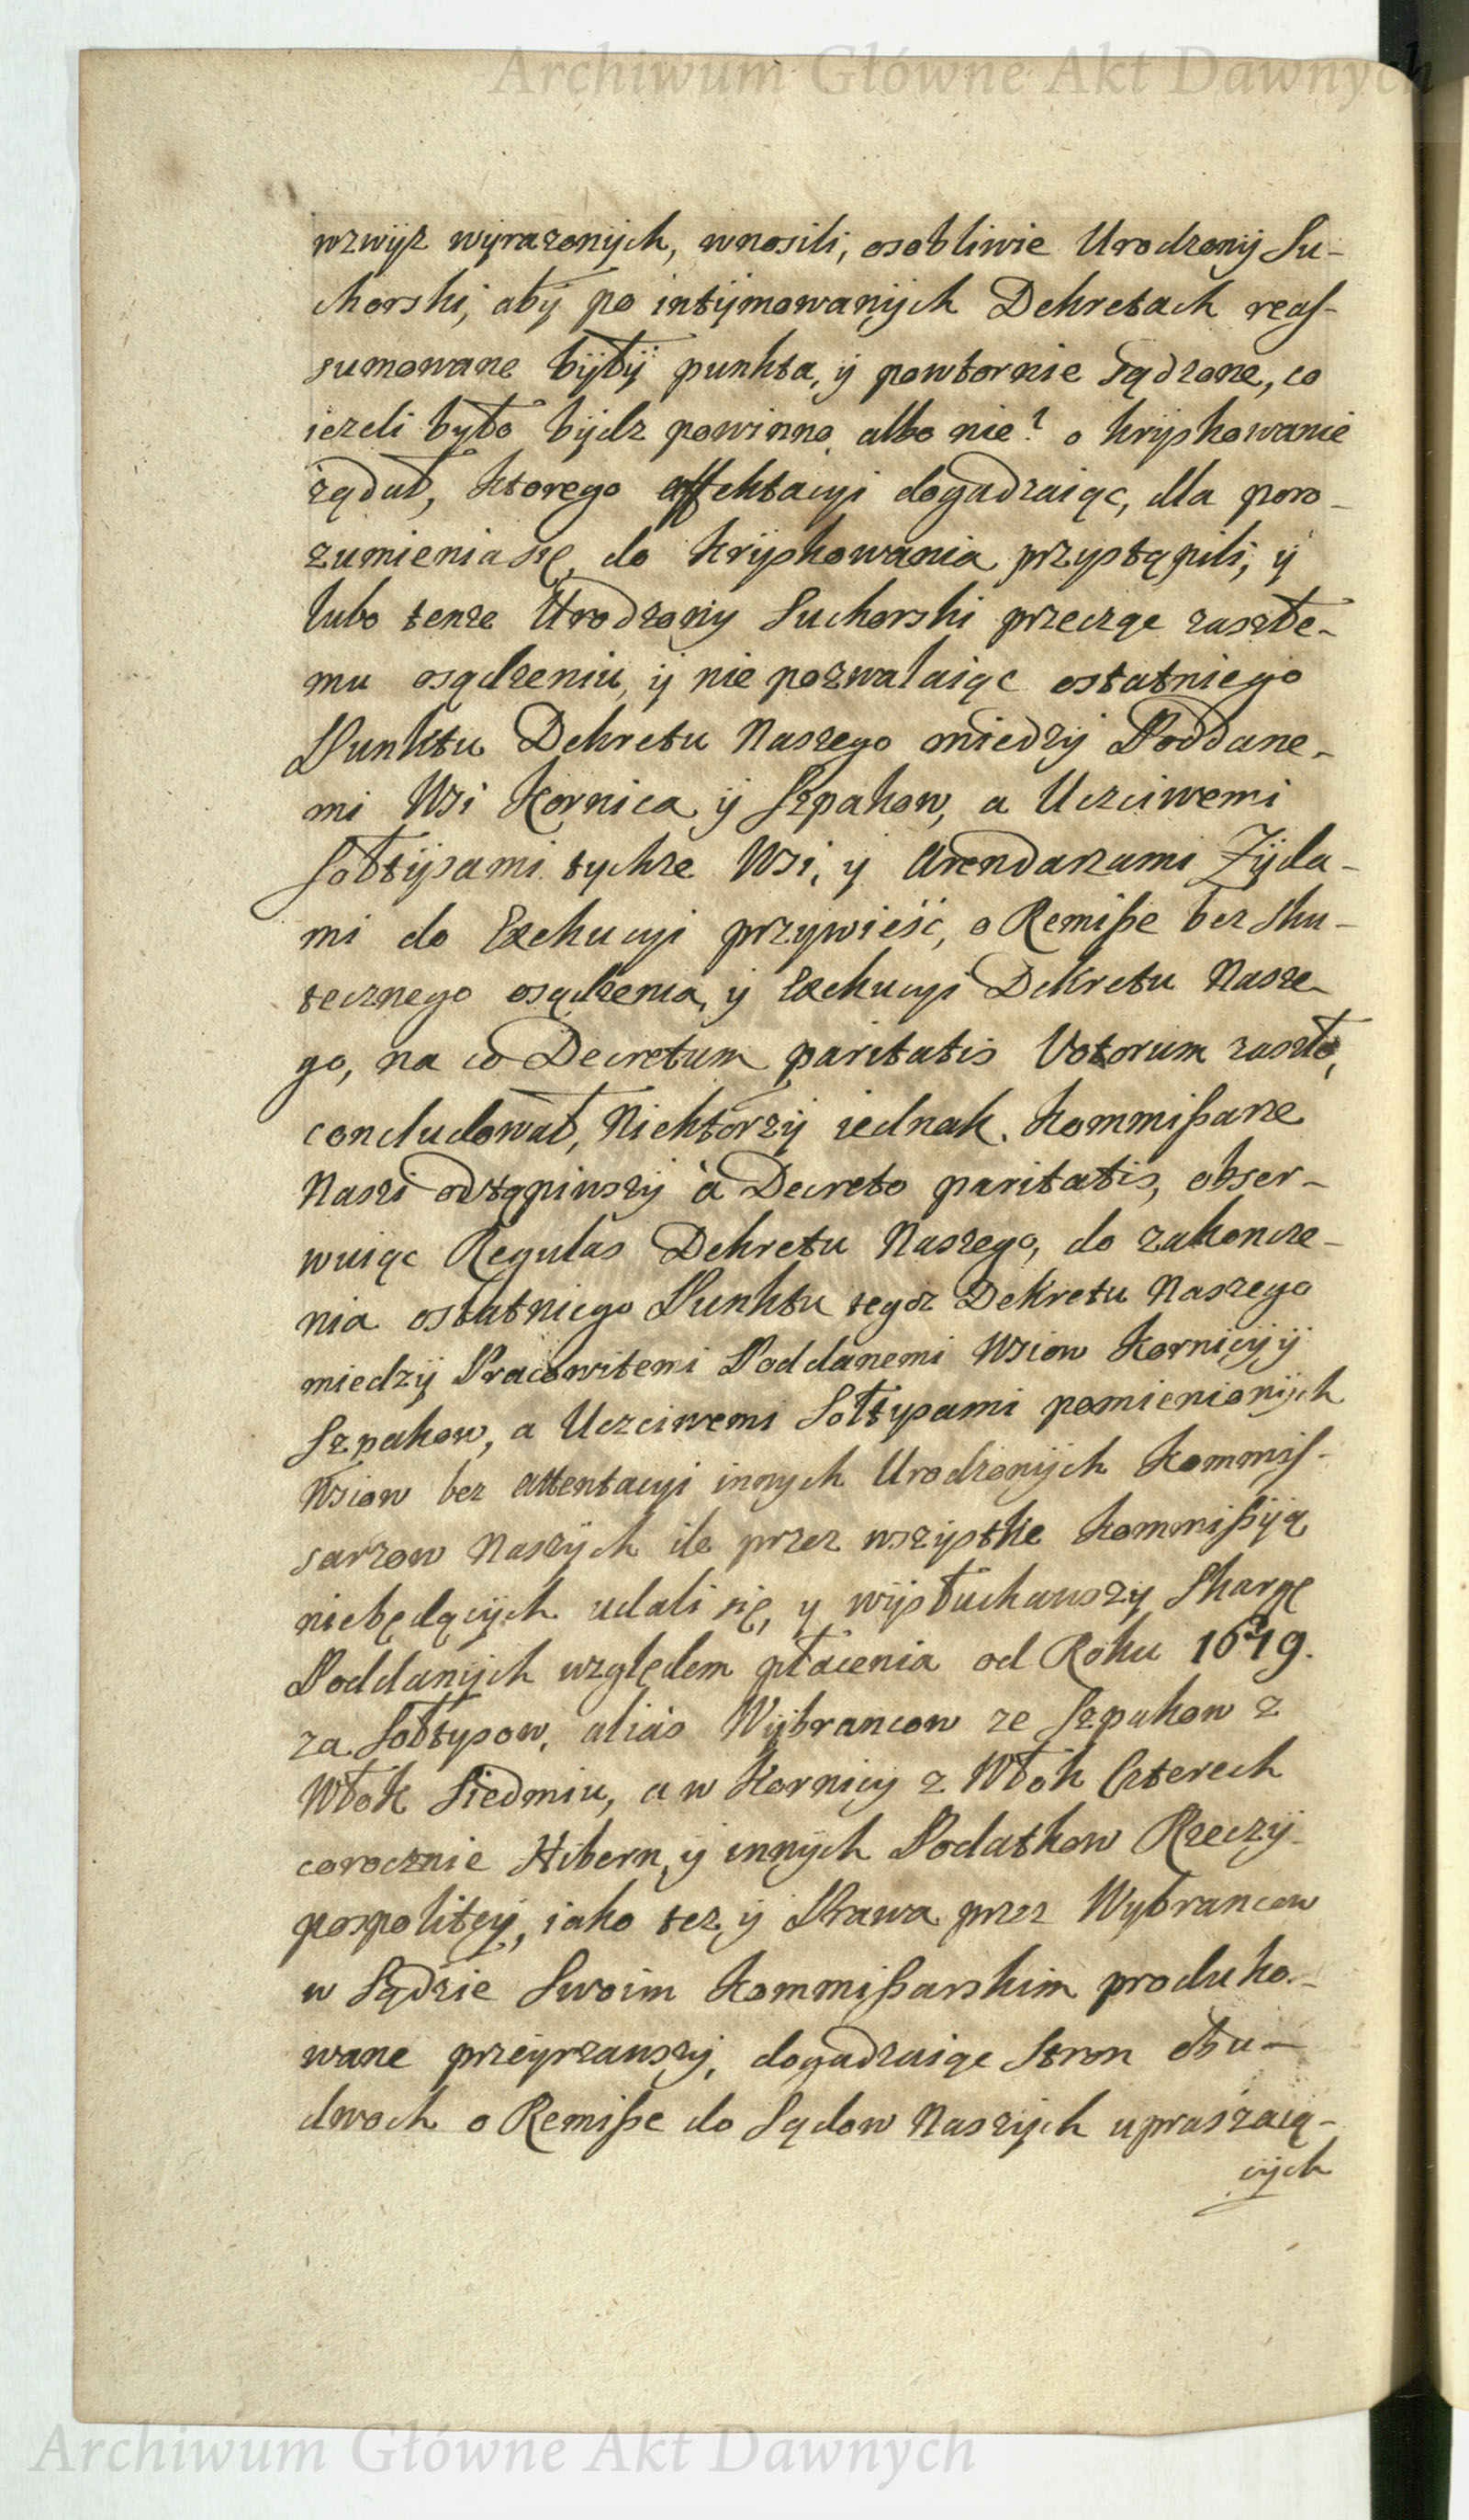 Archiwum Główne Akt Dawnych
wzwyż wyrażonych, wnosili, osobliwie Urodzony Su-
chorski, aby po intymowanych Dekretach reas-
sumowane były punkta, y powtornie sądzone, co
ieżeli było bydz powinno, albo nie? o kryskowanie
żądał, ktorego affektacyi dogadzaiąc, dla poro-
zumienia się, do kryskowania przystąpili, y
lubo tenże Urodzony Suchorski przecząc zaszłe-
mu osądzeniu, y nie pozwalaiąc ostatniego
Punktu Dekretu Naszego miedzy Poddane-
mi Wsi Kornica y Szpakow, a Uczciwemi
Sołtysami tychże Wsi, y Arendarzami Żyda-
mi do Exekucyi przywieść, o Remiße bez sku-
tecznego osądzenia, y Exekucyi Dekretu Nasze-
go, na co Decretum paritatis Votorum zaszło,
concludował, Niektorzy iednak Kommißarze
Nasi odstąpiwszy à Decreto paritatis, obser-
wuiąc Regulas Dekretu Naszego, do zakoncze-
nia ostatniego Punktu tegoż Dekretu Naszego
miedzy Pracowitemi Poddanemi Wsiow Kornicy y
Szpakow, a Uczciwemi Sołtysami pomienionych
Wsiow bez attentacyi innych Urodzonych Kommis-
sarzow Naszych ile przez wszystke Kommißyią
niebędących udali się, y wysłuchawszy Skargę
Poddanych względem płacenia od Roku
za Sołtysow, alias Wybrancow ze Szpakow z
Włok Siedmiu, a w Kornicy z Włok Czterech
corocznie Hibern, y innych Podatkow Rzeczy-
pospolitey, iako też y Prawa przez Wybrancow
w Sądzie Swoim Kommißarskim produko-
wane przeyrzawszy, dogadzaiąc Stron obu-
dwoch o Remiße do Sądow Naszych upraszaią-
cych
Archiwum Główne Akt Dawnych